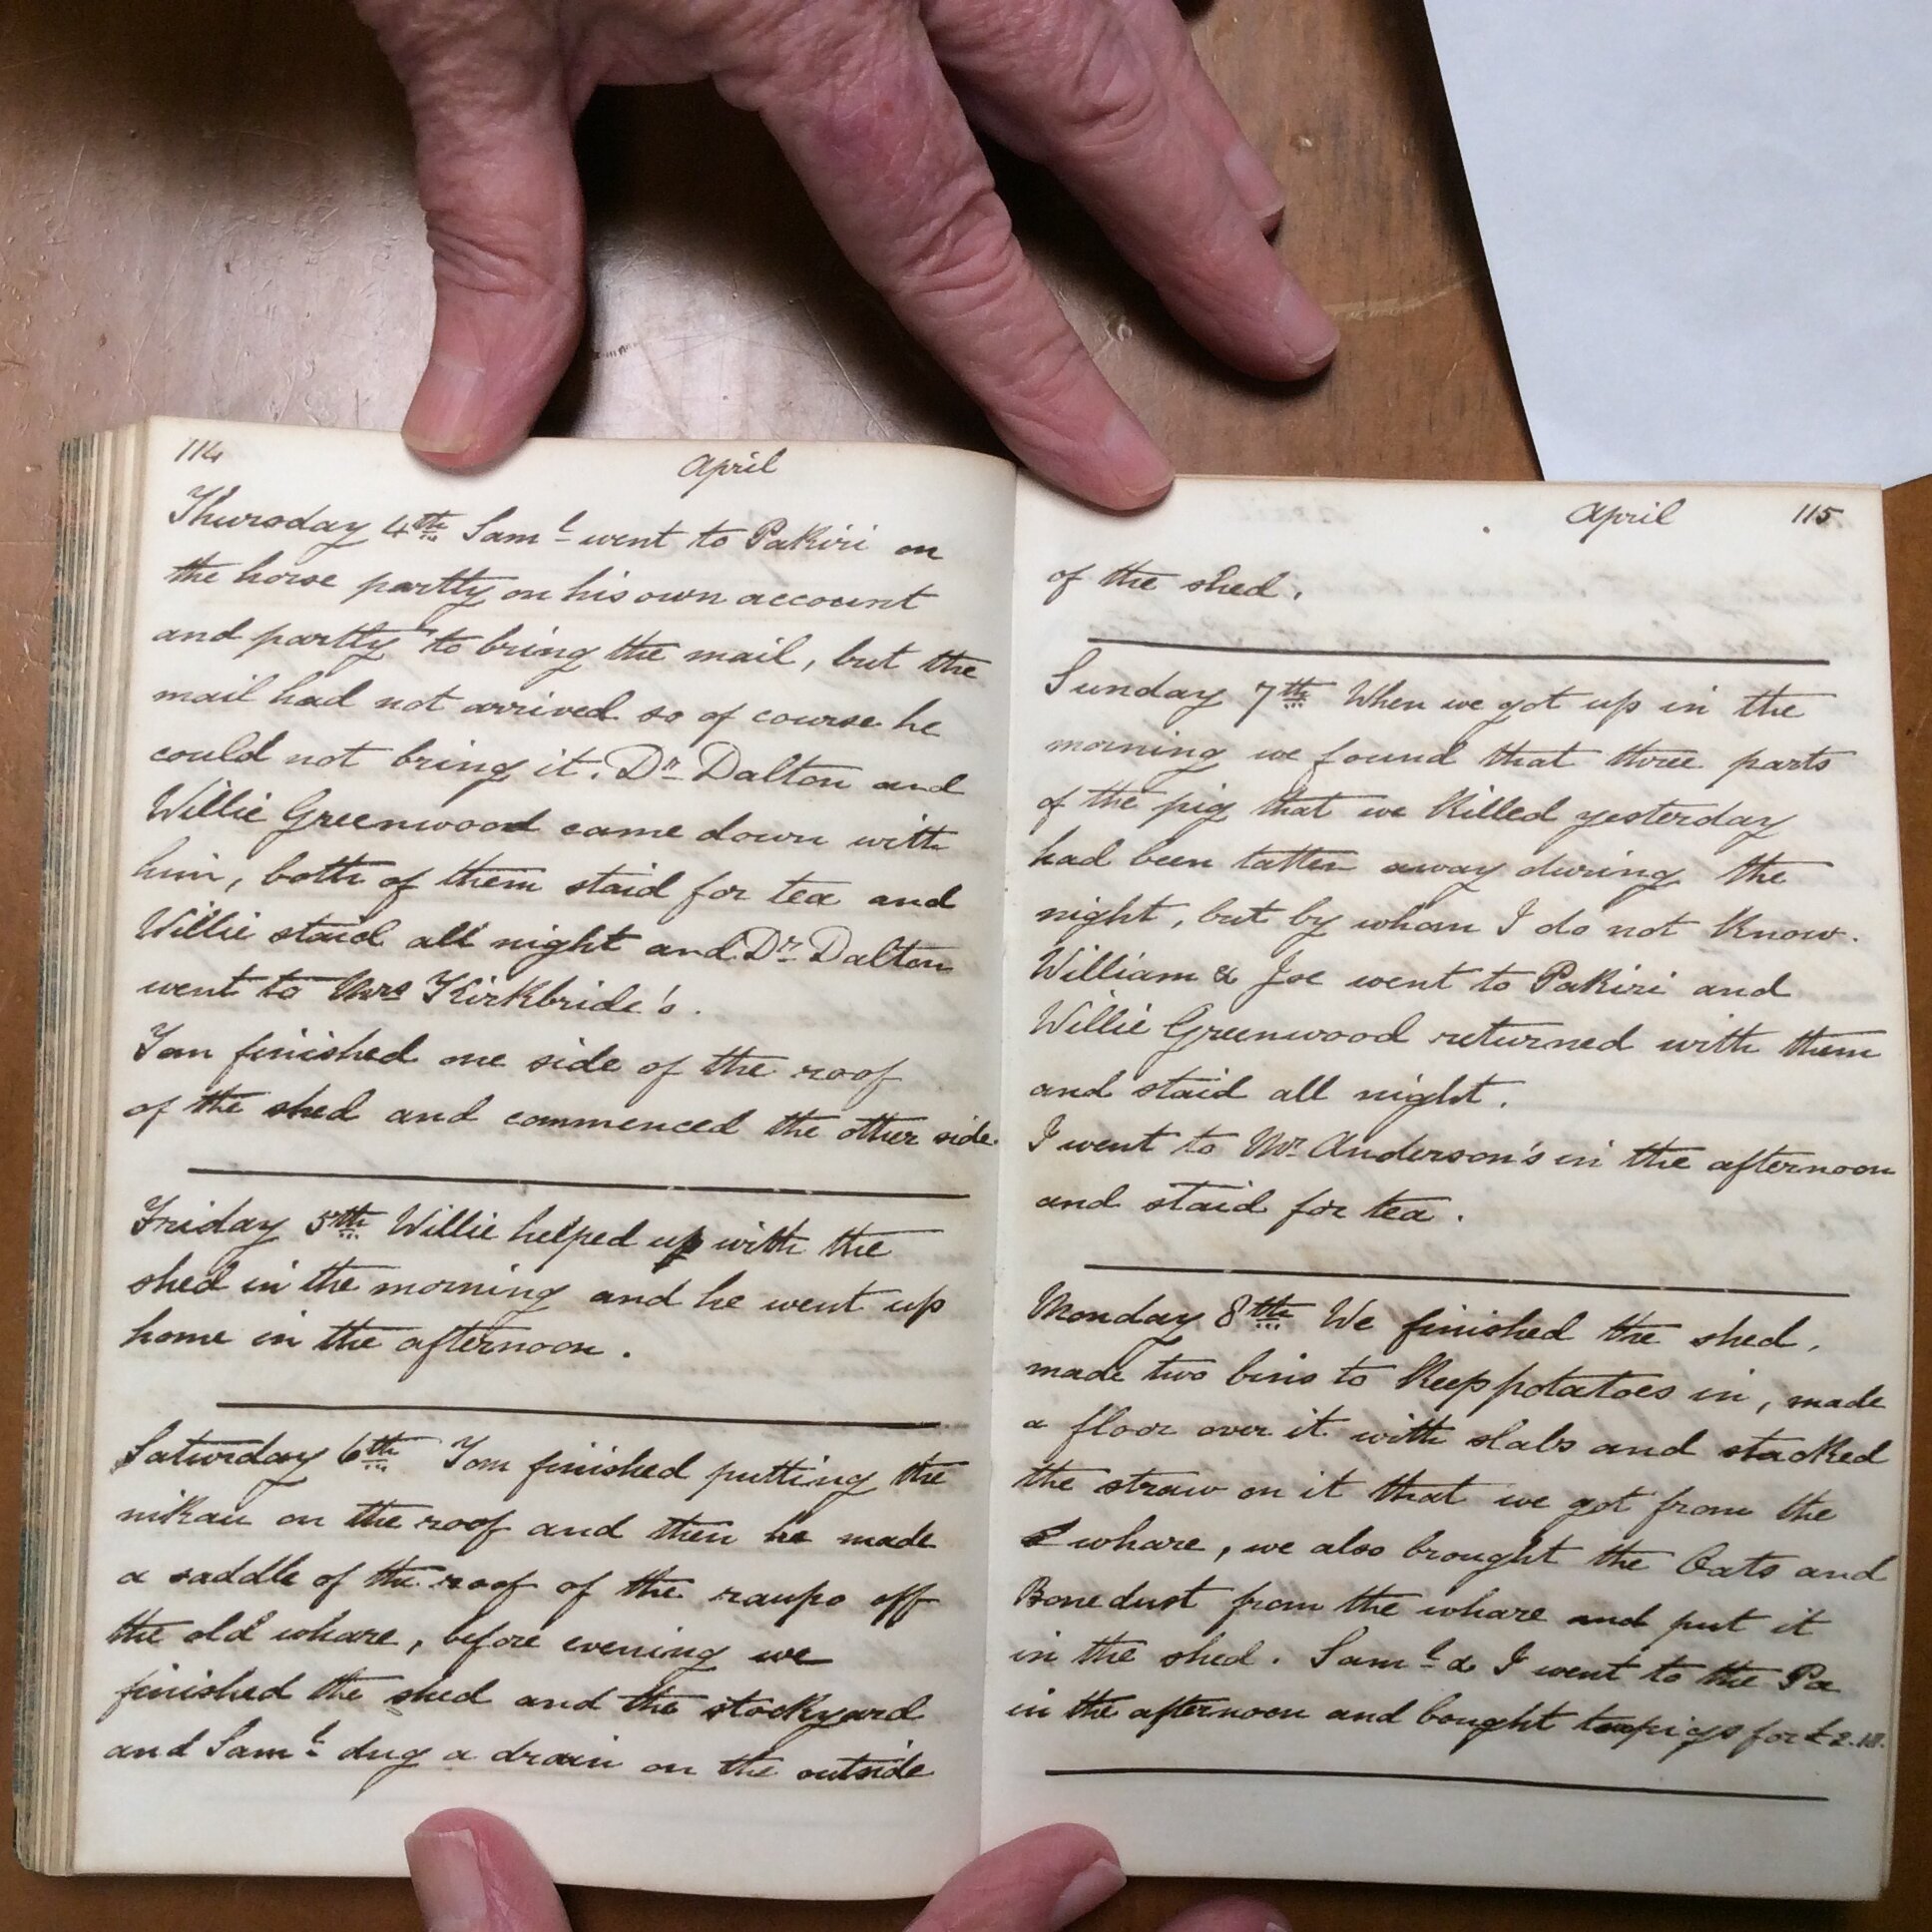 114 April
Thursday 4th Saml went to Pakiri on
the horse partly on his own account
and partly to bring the mail, but the
mail had not arrived so of course he
could not bring it. Dr Dalton and
Willie Greenwood came down with
him, both of them staid for tea and
Willie staid all night and Dr Dalton
went to Mrs Kirkbride's.
Tom finished one side of the roof
of the shed and commenced the other side.
Friday 5th Willie helped up with the
shed in the morning and he went up
home in the afternoon.
Saturday 6th Tom finished putting the
nikau on the roof and then he made
a saddle of the roof of the raupo off
the old whare, before evening we
finished the shed and the stockyard
and Saml dug a drain on the outside
April 115
of the shed.
Sunday 7th When we got up in the
morning we found that three parts
of the pig that we killed yesterday
had been tatten away during the
night, but by whom I do not know.
William & Joe went to Pakiri and
Willie Greenwood returned with them
and staid all night.
I went to Mr Anderson's in the afternoon
and staid for tea.
Monday 8th We finished the shed,
made two bins to keep potatoes in, made
a floor over it with slabs and stacked
the straw on it that we got from the
whare, we also brought the Oats and
Bonedust from the whare and put it
in the shed. Saml & I went to the Pa
in the afternoon and bought two pigs for £2.